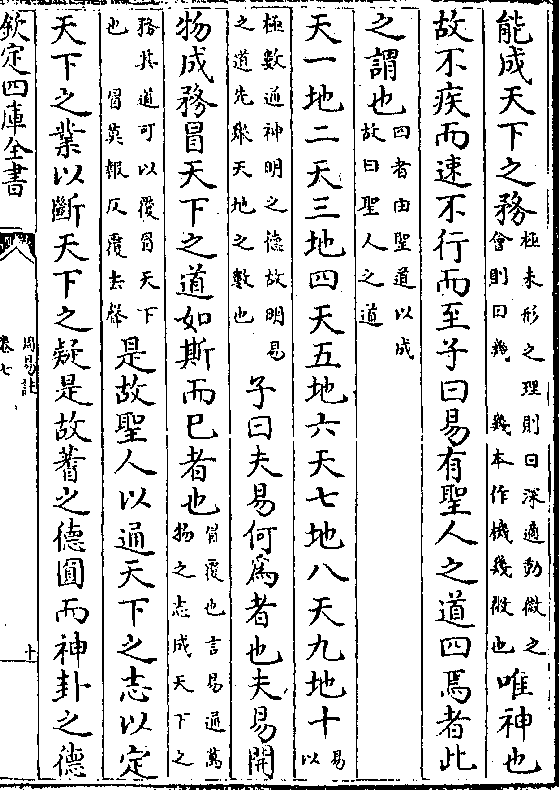 能成天下之務極未形之理則曰深適動微之會則曰幾　幾本作機幾殷也唯神也
故不疾而速不行而至子曰易有聖人之道四焉者此
之謂也四者由聖道以成故曰聖人之道
天一地二天三地四天五地六天七地八天九地十易以
極數通神明之德故明易之道先舉天地之數也子曰夫易何爲者也夫易開
物成務冒天下之道如斯而已者也冒覆也言易通萬物之志成天下之
務其道可以覆冒天下也　冒莫報反覆去聲是故聖人以通天下之志以定
天下之業以斷天下之疑是故蓍之德圓而神卦之德
欽定四庫全書
周易註
卷七
十